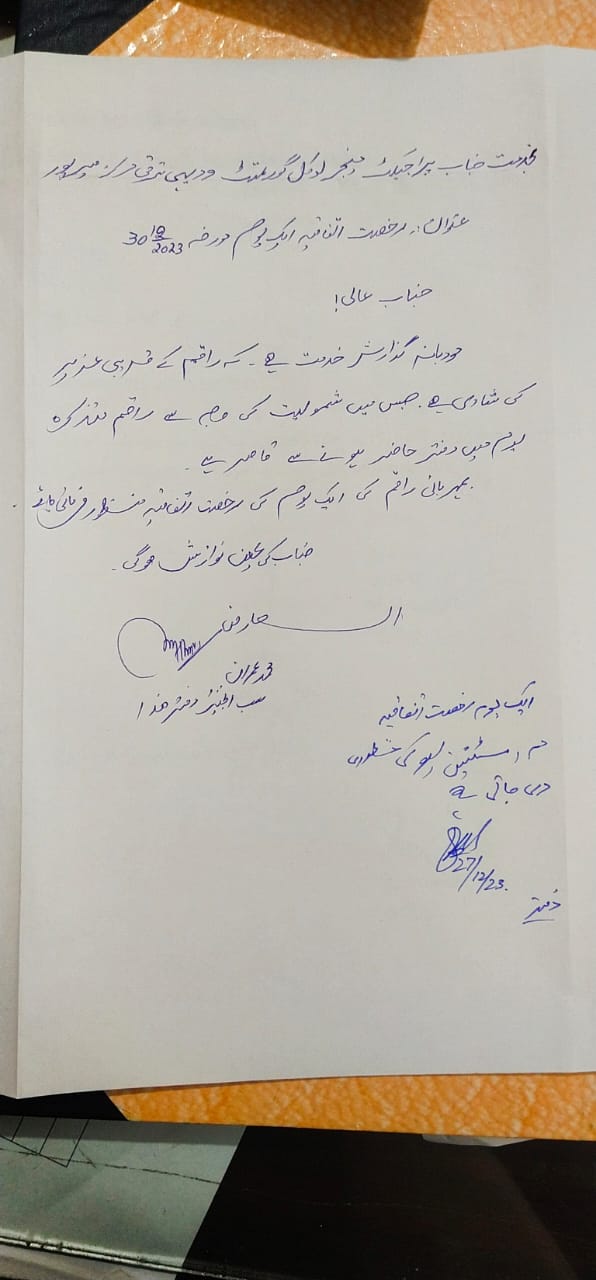 بخدمت جناب پراجیکٹ منیجر لوکل گورنمنٹ و دیہی ترقی مرکز میرپور
عنوان:۔ رخصت اتفاقیہ ایک یوم مورخہ 30 2023
جناب عالی!
مودبانہ گذارش خدمت ہے۔ کہ راقم کے قریبی عزیز
کی شادی ہے۔ جس میں شمولیت کی وجہ سے راقم متذکرہ
یوم میں دفتر حاضر ہونے سے قاصر ہے۔
مہربانی راقم کی ایک یوم کی رخصت اتفاقیہ منظور فرمائی جائے۔
جناب کی عین نوازش ہوگی۔
العارض
محمد عمران
سب انجینئر دفتر ھذا
ایک یوم رخصت اتفاقیہ
کی منظوری
دی جاتی ہے
27/12/23.
دفتر